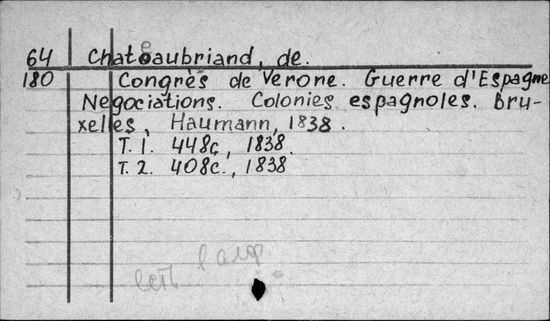 64 Chateaubriand, de.
180 Congrès de Verone. Guerre d'Espagne
Negociations. Colonies espagnoles. Bru-
xelles, Haumann, 1838.
T. 1. 448с, 1838.
T. 2. 408с., 1838
есть